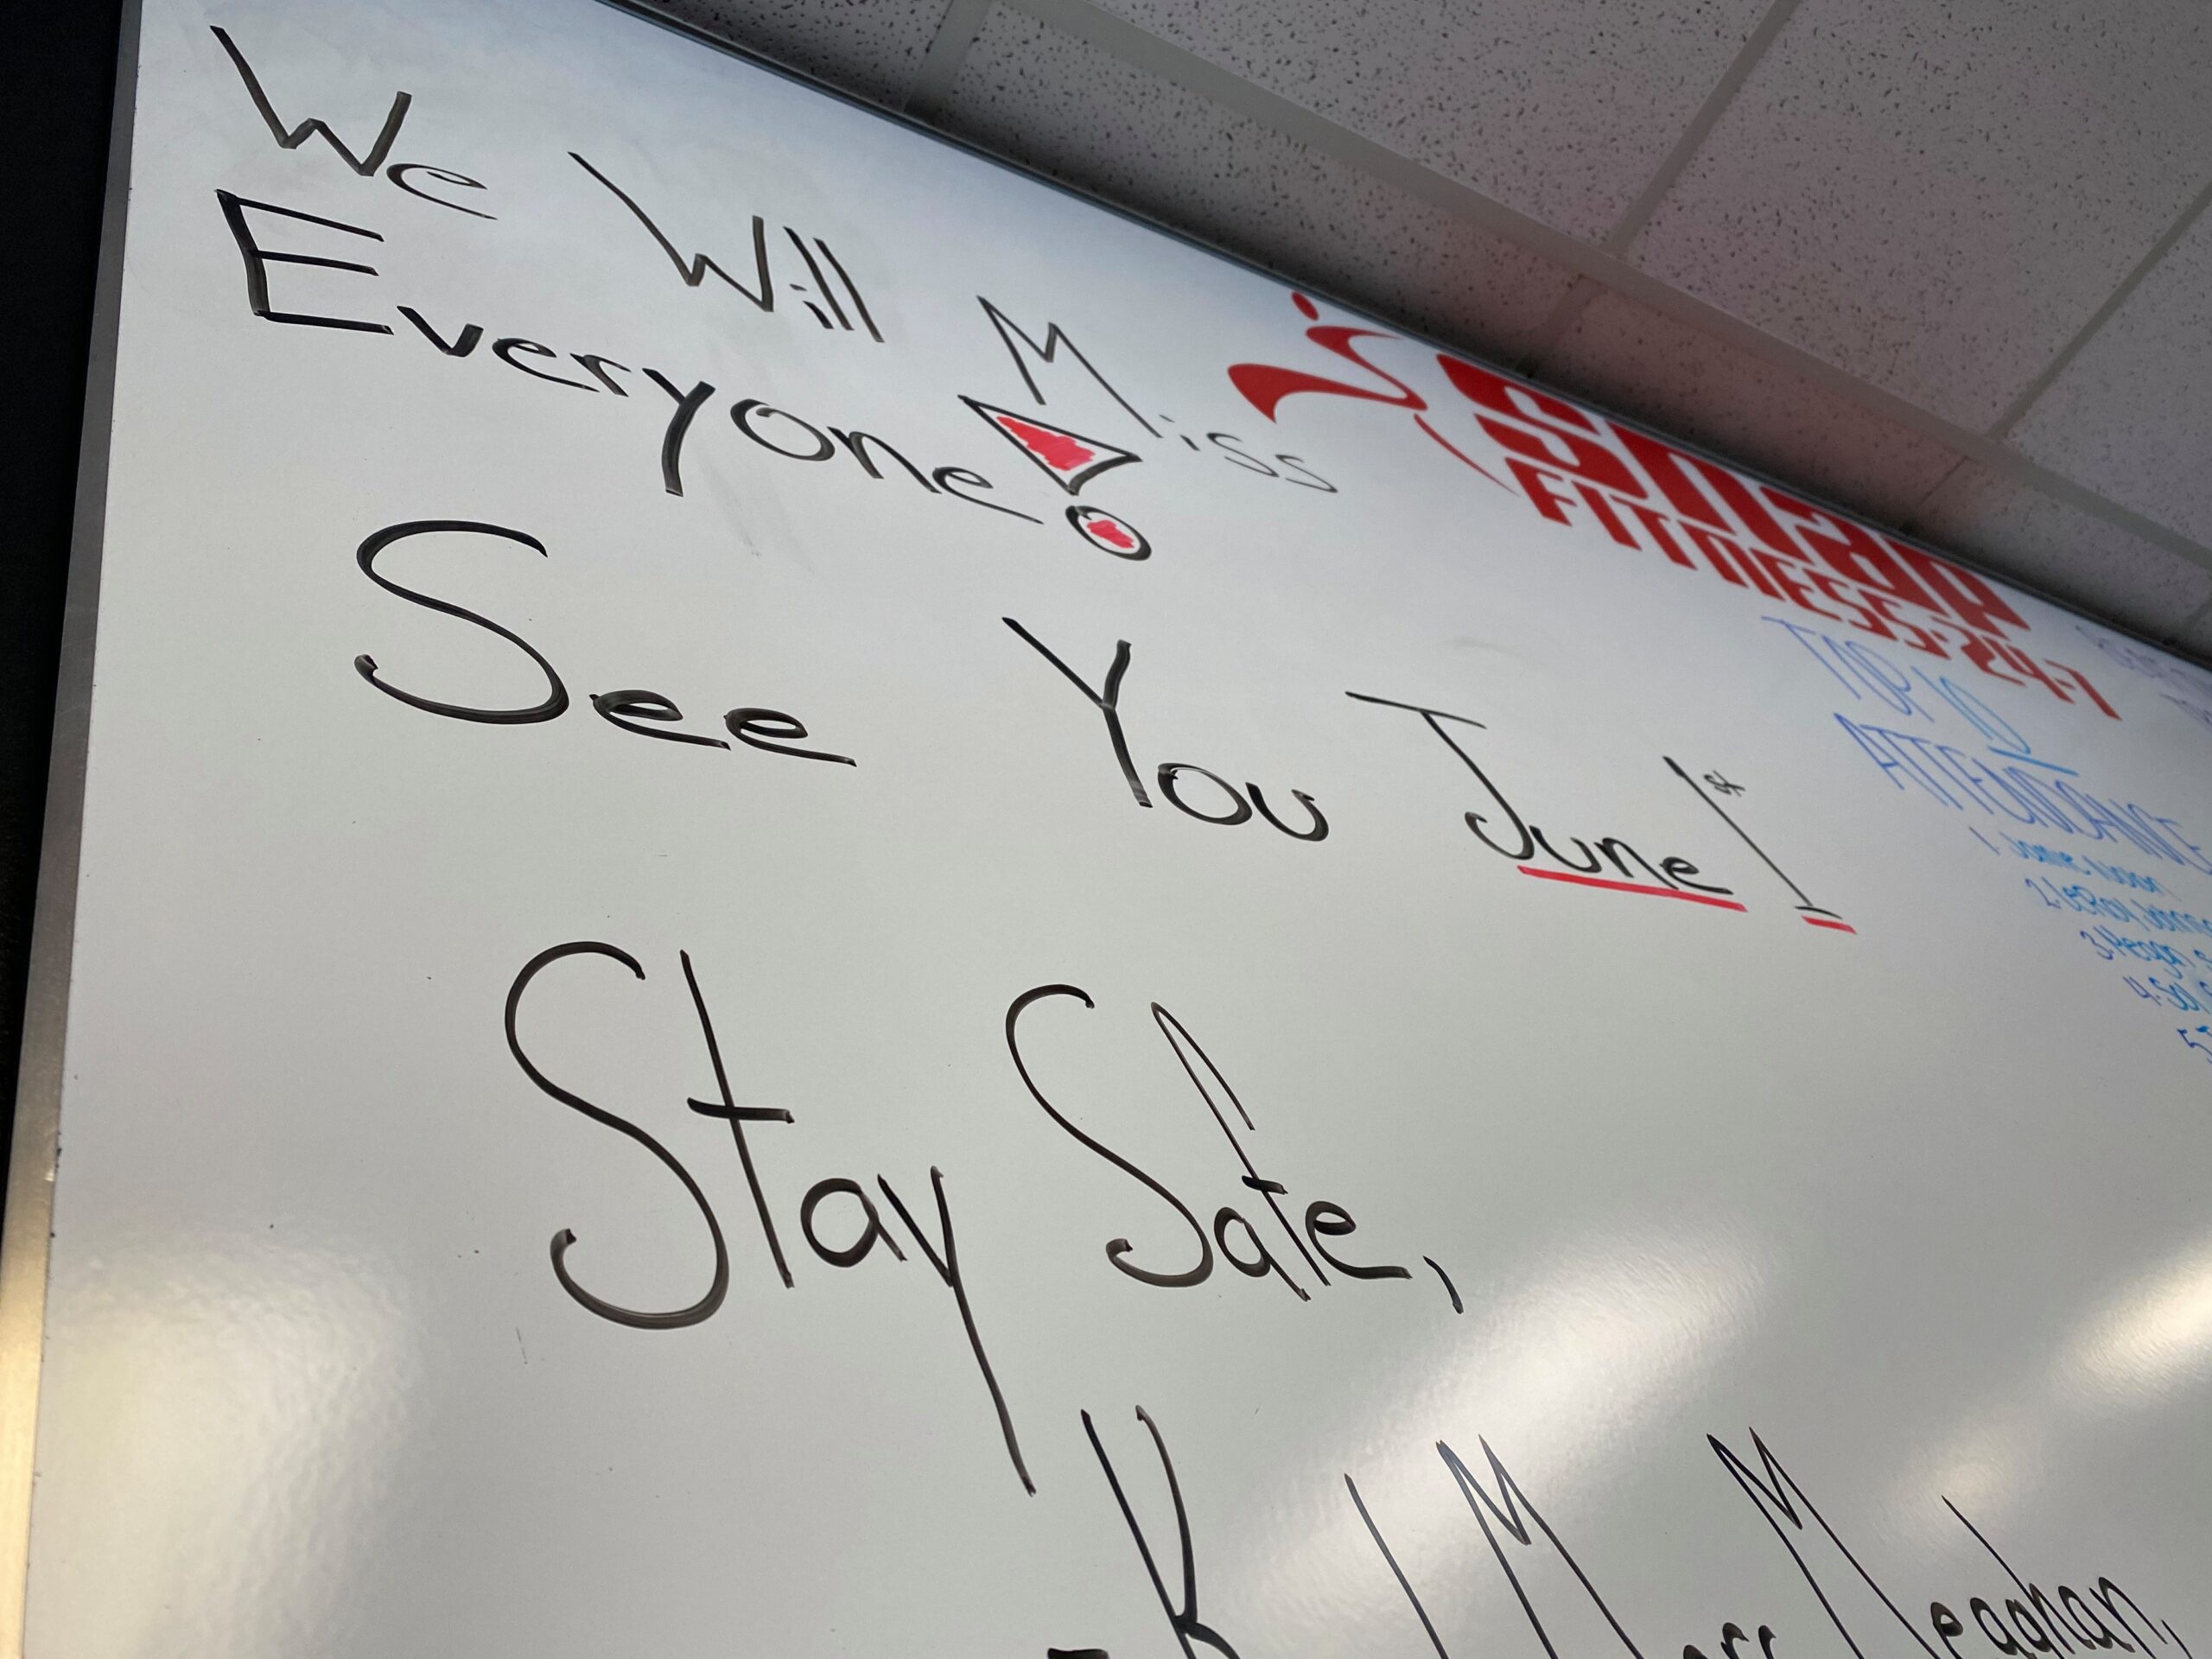 We Will Miss
Everyone!
See You June 1st
Stay Safe,
Meaghan,
snap
FITNESS-24-7
TOP 10
ATTENDANCE